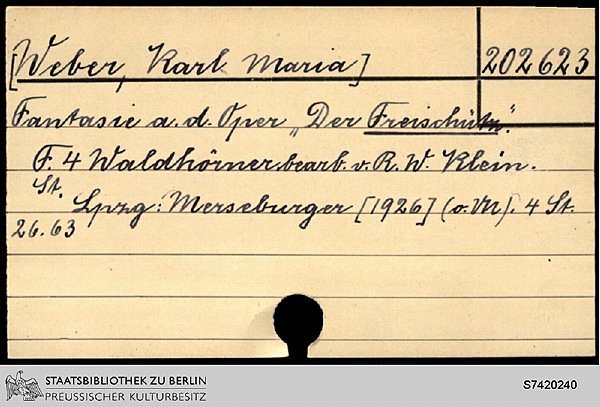 [Weber, Karl Maria]
202623
Fantasie a. d. Oper „Der Freischütz“.
F. 4 Waldhörner bearb. v. R. W. Klein.
St.
Lpzg: Merseburger [1926] (o. Vn). 4 St.
26.63
STAATSBIBLIOTHEK ZU BERLIN
PREUSSISCHER KULTURBESITZ
S7420240